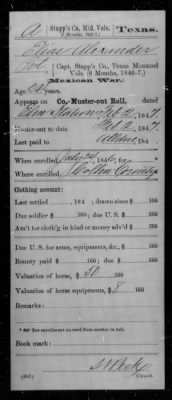 A Stapp's Co., Mtd. Vols. Texas.
(6 Months, 1846-7.)
Alexander
(Capt. Stapp's Co., Texas Mounted
Vols. (6 Months, 1846-7.)
Mexican War.)
Age years.
Appears on
Co. Muster-out Roll, dated
Station, Feb 2, 1847.
Muster-out to date Feb 2, 184
Last paid to 184
When enrolled July 184
Where enrolled County
Clothing account:
Last settled 184 ; drawn since $ 100
Due soldier $ 100 ; due U. S. $ 100
Am't for cloth'g in kind or money adv'd $ 100
Due U. S. for arms, equipments, &c., $ 100
Bounty paid $ 100 ; due $ 100
Valuation of horse, $ 50 100
Valuation of horse equipments, $ 8 100
Remarks:
Book mark:
Copyist.